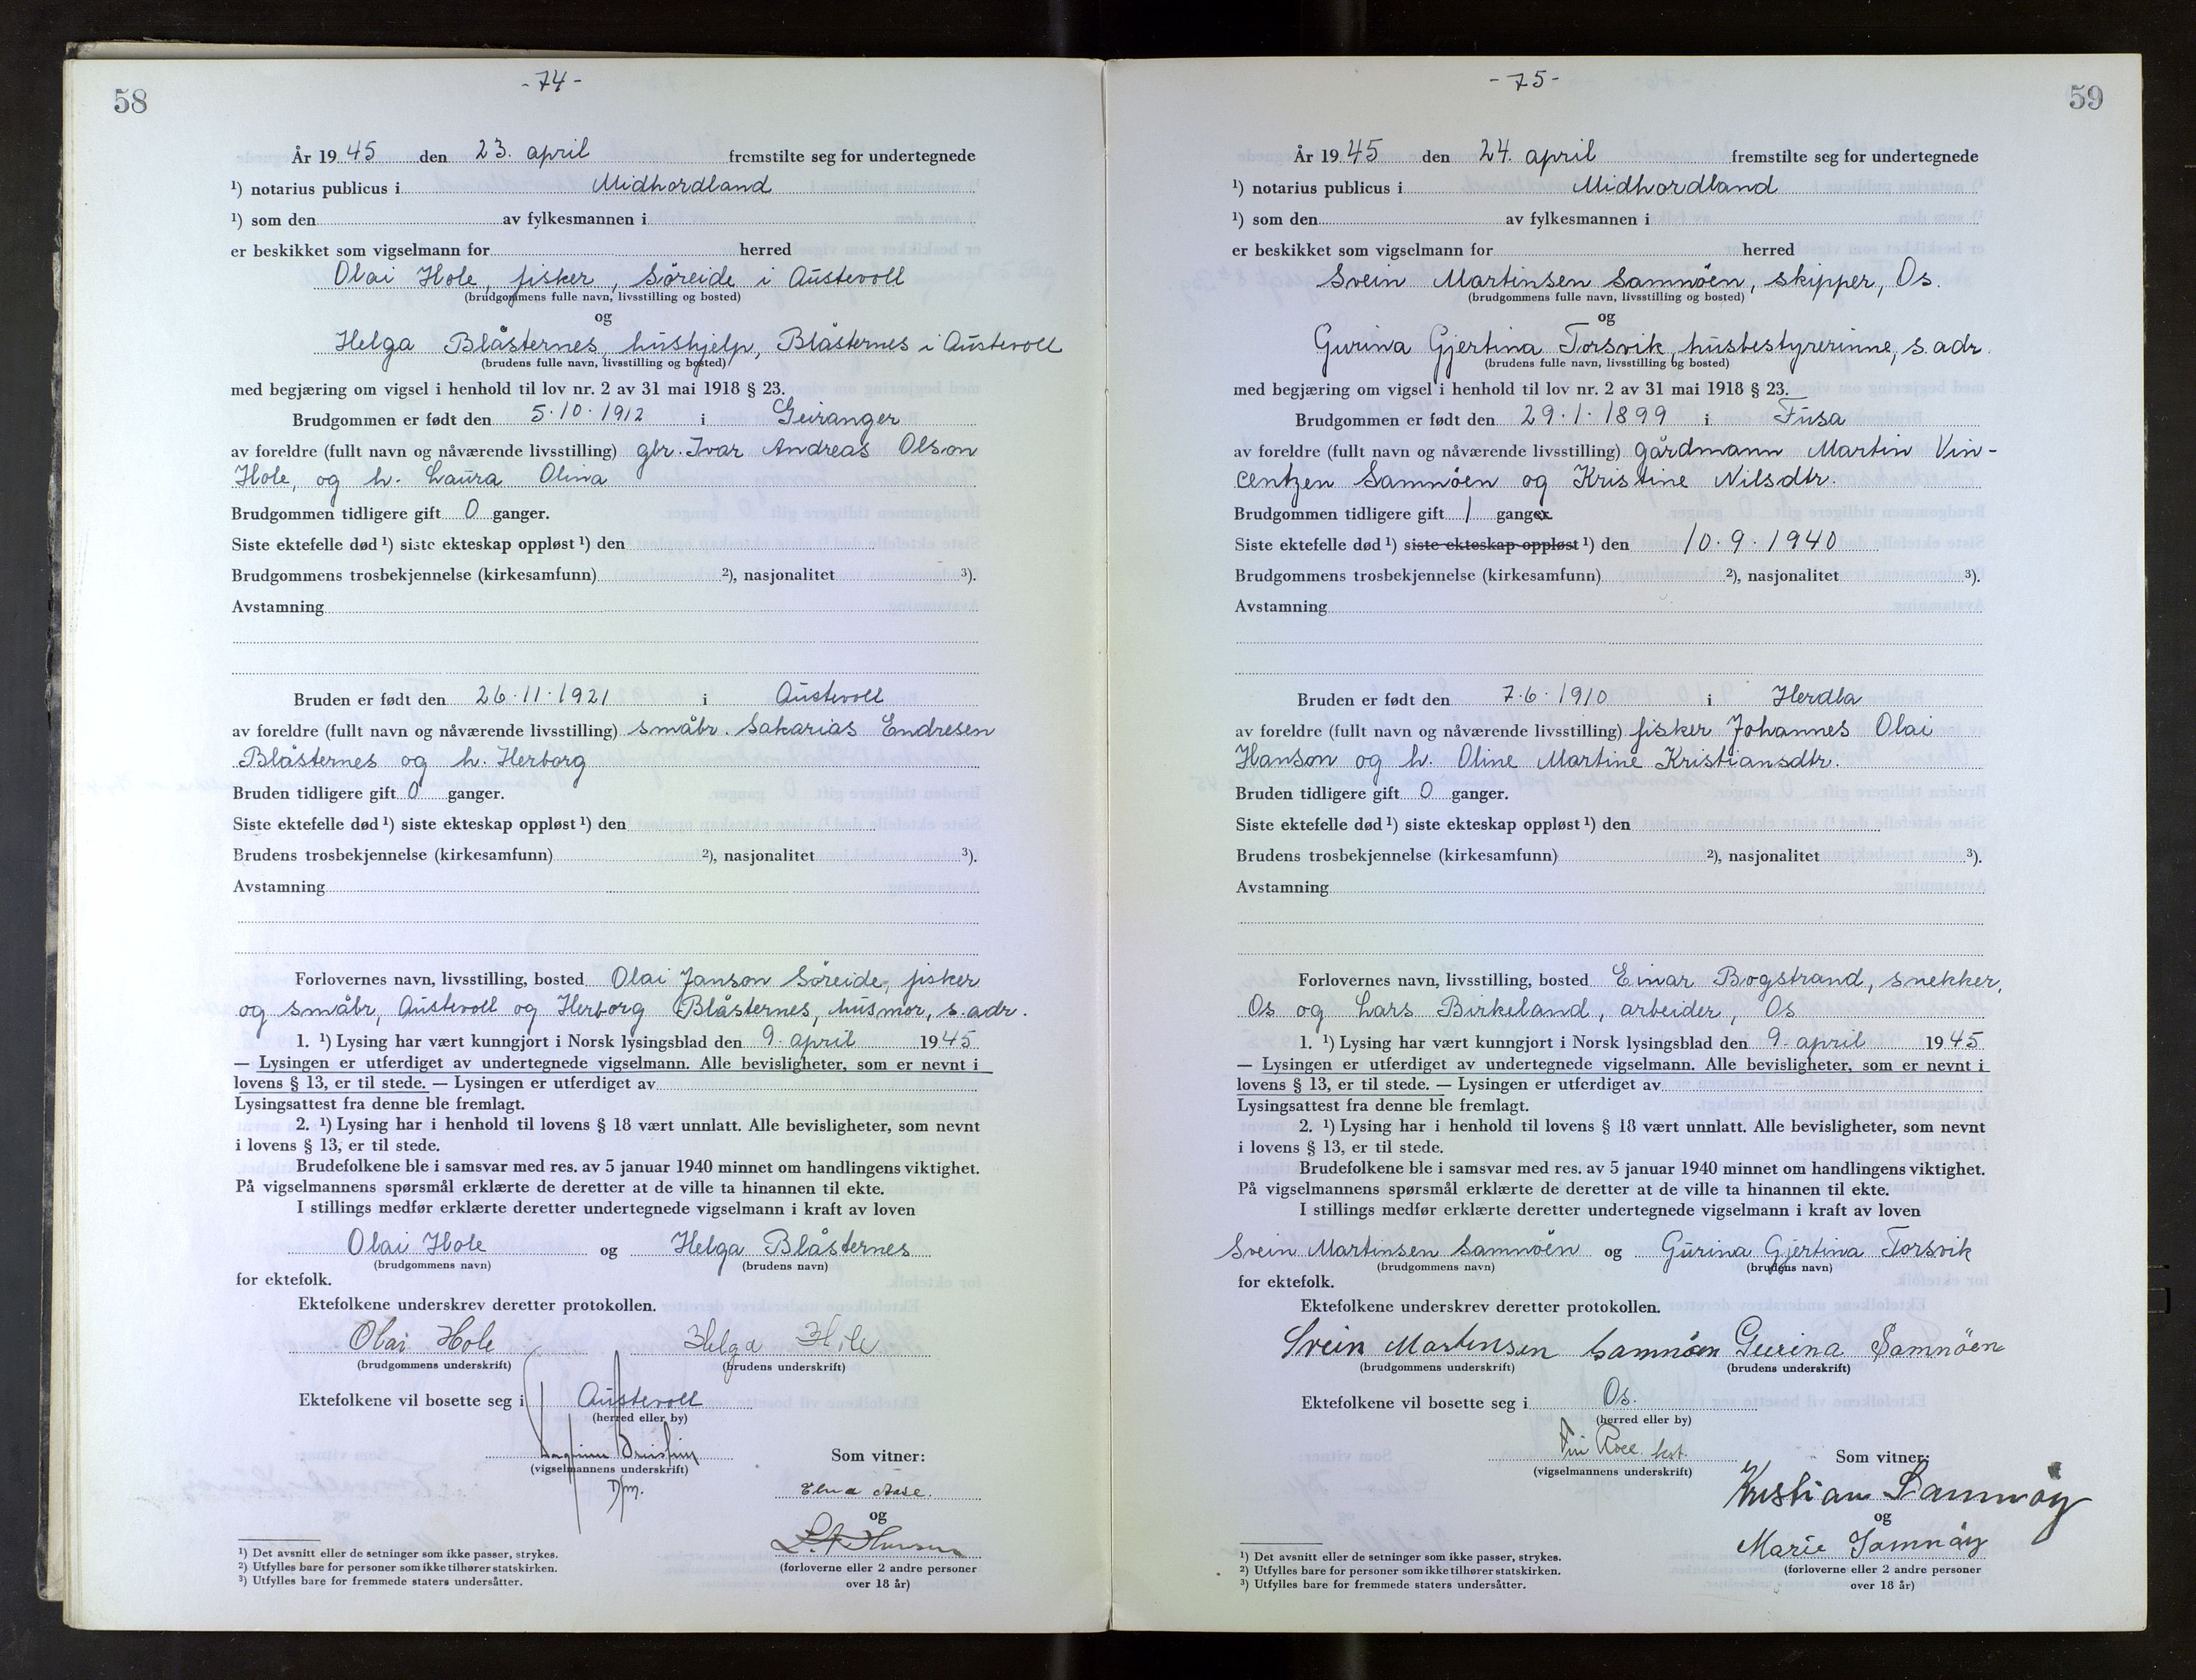 58
- 74 -
År 19 45 den 23. april fremstilte seg for undertegnede
¹) notarius publicus i Midhordland
¹) som den av fylkesmannen i
er beskikket som vigselmann for herred
Olai Hole, fisker, Søreide i Austevoll
(brudgommens fulle navn, livsstilling og bosted)
og
Helga Blåsternes, hushjelp, Blåsternes i Austevoll
(brudens fulle navn, livsstilling og bosted)
med begjæring om vigsel i henhold til lov nr. 2 av 31 mai 1918 § 23.
Brudgommen er født den 5.10.1912 i Geiranger
av foreldre (fullt navn og nåværende livsstilling) gbr. Ivar Andreas Olson
Hole, og h. Laura Olina
Brudgommen tidligere gift 0 ganger.
Siste ektefelle død ¹) siste ekteskap oppløst ¹) den
Brudgommens trosbekjennelse (kirkesamfunn) ²), nasjonalitet ³).
Avstamning
Bruden er født den 26.11.1921 i Austevoll
av foreldre (fullt navn og nåværende livsstilling) småbr. Sakarias Endresen
Blåsternes og h. Herborg
Bruden tidligere gift 0 ganger.
Siste ektefelle død ¹) siste ekteskap oppløst ¹) den
Brudens trosbekjennelse (kirkesamfunn) ²), nasjonalitet ³).
Avstamning
Forlovernes navn, livsstilling, bosted Olai Janson Søreide, fisker
og småbr, Austevoll og Herborg Blåsternes, husmor, s. adr.
1. ¹) Lysing har vært kunngjort i Norsk lysingsblad den 9. april 1945
— Lysingen er utferdiget av undertegnede vigselmann. Alle bevisligheter, som er nevnt i
lovens § 13, er til stede. — Lysingen er utferdiget av
Lysingsattest fra denne ble fremlagt.
2. ¹) Lysing har i henhold til lovens § 18 vært unnlatt. Alle bevisligheter, som nevnt
i lovens § 13, er til stede.
Brudefolkene ble i samsvar med res. av 5 januar 1940 minnet om handlingens viktighet.
På vigselmannens spørsmål erklærte de deretter at de ville ta hinannen til ekte.
I stillings medfør erklærte deretter undertegnede vigselmann i kraft av loven
Olai Hole og Helga Blåsternes
(brudgommens navn) (brudens navn)
for ektefolk.
Ektefolkene underskrev deretter protokollen.
Olai Hole Helga Hole
(brudgommens underskrift) (brudens underskrift)
Ektefolkene vil bosette seg i Austevoll
(herred eller by)
Som vitner:
(vigselmannens underskrift)
Dfm.
Elna Aase.
og
(forloverne eller 2 andre personer
over 18 år)
¹) Det avsnitt eller de setninger som ikke passer, strykes.
²) Utfylles bare for personer som ikke tilhører statskirken.
³) Utfylles bare for fremmede staters undersåtter.
59
- 75 -
År 19 45 den 24. april fremstilte seg for undertegnede
¹) notarius publicus i Midhordland
¹) som den av fylkesmannen i
er beskikket som vigselmann for herred
Svein Martinsen Samnøen, skipper, Os.
(brudgommens fulle navn, livsstilling og bosted)
og
Gurina Gjertina Torsvik, husbestyrerinne, s. adr.
(brudens fulle navn, livsstilling og bosted)
med begjæring om vigsel i henhold til lov nr. 2 av 31 mai 1918 § 23.
Brudgommen er født den 29.1.1899 i Fusa
av foreldre (fullt navn og nåværende livsstilling) gårdmann Martin Vin-
centzen Samnøen og Kristine Nilsdtr.
Brudgommen tidligere gift 1 ganger.
Siste ektefelle død ¹) siste ekteskap oppløst ¹) den 10.9.1940
Brudgommens trosbekjennelse (kirkesamfunn) ²), nasjonalitet ³).
Avstamning
Bruden er født den 7.6.1910 i Herdla
av foreldre (fullt navn og nåværende livsstilling) fisker Johannes Olai
Hanson og h. Oline Martine Kristiansdtr.
Bruden tidligere gift 0 ganger.
Siste ektefelle død ¹) siste ekteskap oppløst ¹) den
Brudens trosbekjennelse (kirkesamfunn) ²), nasjonalitet ³).
Avstamning
Forlovernes navn, livsstilling, bosted Einar Bogstrand, snekker,
Os og Lars Birkeland, arbeider, Os
1. ¹) Lysing har vært kunngjort i Norsk lysingsblad den 9. april 1945
— Lysingen er utferdiget av undertegnede vigselmann. Alle bevisligheter, som er nevnt i
lovens § 13, er til stede. — Lysingen er utferdiget av
Lysingsattest fra denne ble fremlagt.
2. ¹) Lysing har i henhold til lovens § 18 vært unnlatt. Alle bevisligheter, som nevnt
i lovens § 13, er til stede.
Brudefolkene ble i samsvar med res. av 5 januar 1940 minnet om handlingens viktighet.
På vigselmannens spørsmål erklærte de deretter at de ville ta hinannen til ekte.
I stillings medfør erklærte deretter undertegnede vigselmann i kraft av loven
Svein Martinsen Samnøen og Gurina Gjertina Torsvik
(brudgommens navn) (brudens navn)
for ektefolk.
Ektefolkene underskrev deretter protokollen.
Svein Martinsen Samnøen Gurina Samnöen
(brudgommens underskrift) (brudens underskrift)
Ektefolkene vil bosette seg i Os.
(herred eller by)
Som vitner:
(vigselmannens underskrift)
Kristian Samnøy
og
Marie Samnøy
(forloverne eller 2 andre personer
over 18 år)
¹) Det avsnitt eller de setninger som ikke passer, strykes.
²) Utfylles bare for personer som ikke tilhører statskirken.
³) Utfylles bare for fremmede staters undersåtter.